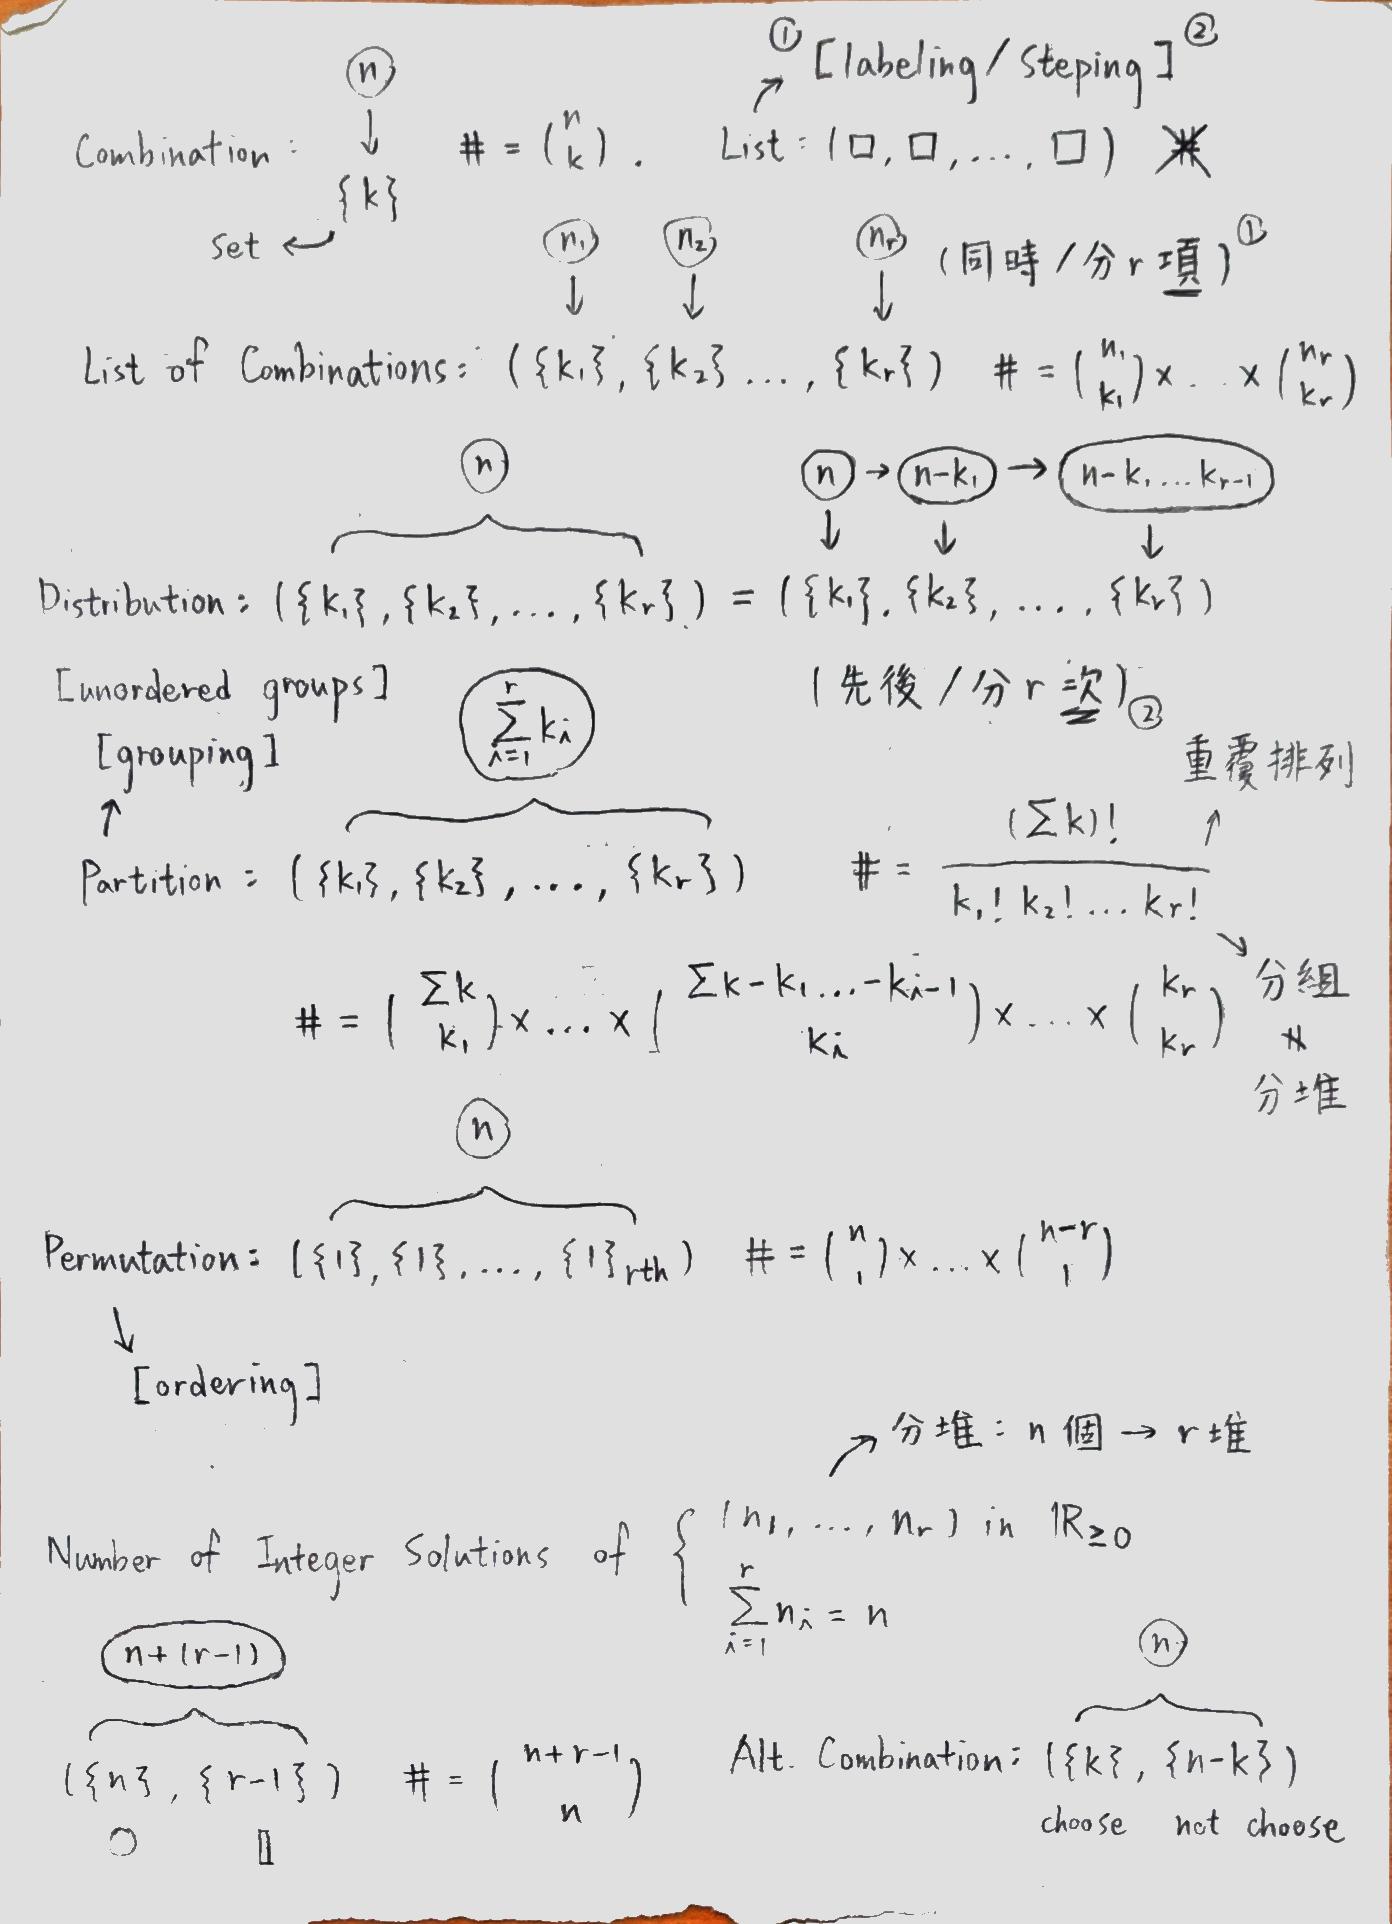 ① [labeling / Steping] ②
n
↓
Combination : {k} # = (n k) . List : (□, □, ..., □)
set ←
n₁ n₂ nᵣ (同時 / 分 r 項) ①
↓ ↓ ↓
List of Combinations: ({k₁}, {k₂} ..., {kᵣ}) # = (n₁ k₁) × .. × (nᵣ kᵣ)
n n → n-k₁ → n-k₁...kᵣ₋₁
↓ ↓ ↓
Distribution: ({k₁}, {k₂}, ..., {kᵣ}) = ({k₁}, {k₂}, ...., {kᵣ})
[unordered groups] (先後 / 分 r 次) ②
[grouping] ∑ᵢ₌₁ʳ kᵢ
↑ 重覆排列
Partition : ({k₁}, {k₂}, ..., {kᵣ}) # = (∑k)! / k₁! k₂! ... kᵣ!
# = (∑k k₁) × ... × (∑k-k₁...-kᵢ₋₁ kᵢ) × ... × (kᵣ kᵣ) 分組
∦
分堆
n
Permutation: ({1}, {1}, ..., {1}rth) # = (n 1) × ... × (n-r 1)
↓
[ordering]
↗ 分堆 : n 個 → r 堆
Number of Integer Solutions of { (n₁, ..., nᵣ) in ℝ≥0
∑ᵢ₌₁ʳ nᵢ = n
n+(r-1) n
({n}, {r-1}) # = (n+r-1 n) Alt. Combination: ({k}, {n-k})
choose not choose